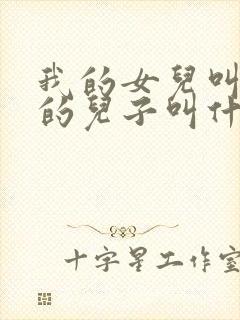 我的女兒叫
的兒子叫什
十字星工作室